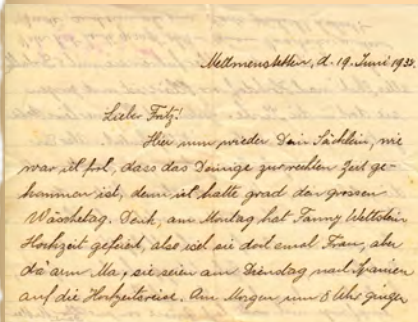 Mettmenstetten, d. 19. Juni 1933.
Lieber Fritz!
Hier nun wieder Dein Säcklein, wie
war ich froh, dass das Deinige zur rechten Zeit ge-
kommen ist, denn ich hatte grad den grossen
Wäschetag. Denk, am Montag hat Fanny Wettstein
Hochzeit gefeiert, also isch sie doch emal Frau, aber
dä arm Ma, sie seien am Dienstag nach Spanien
auf die Hochzeitsreise. Am Morgen um 8 Uhr gingen